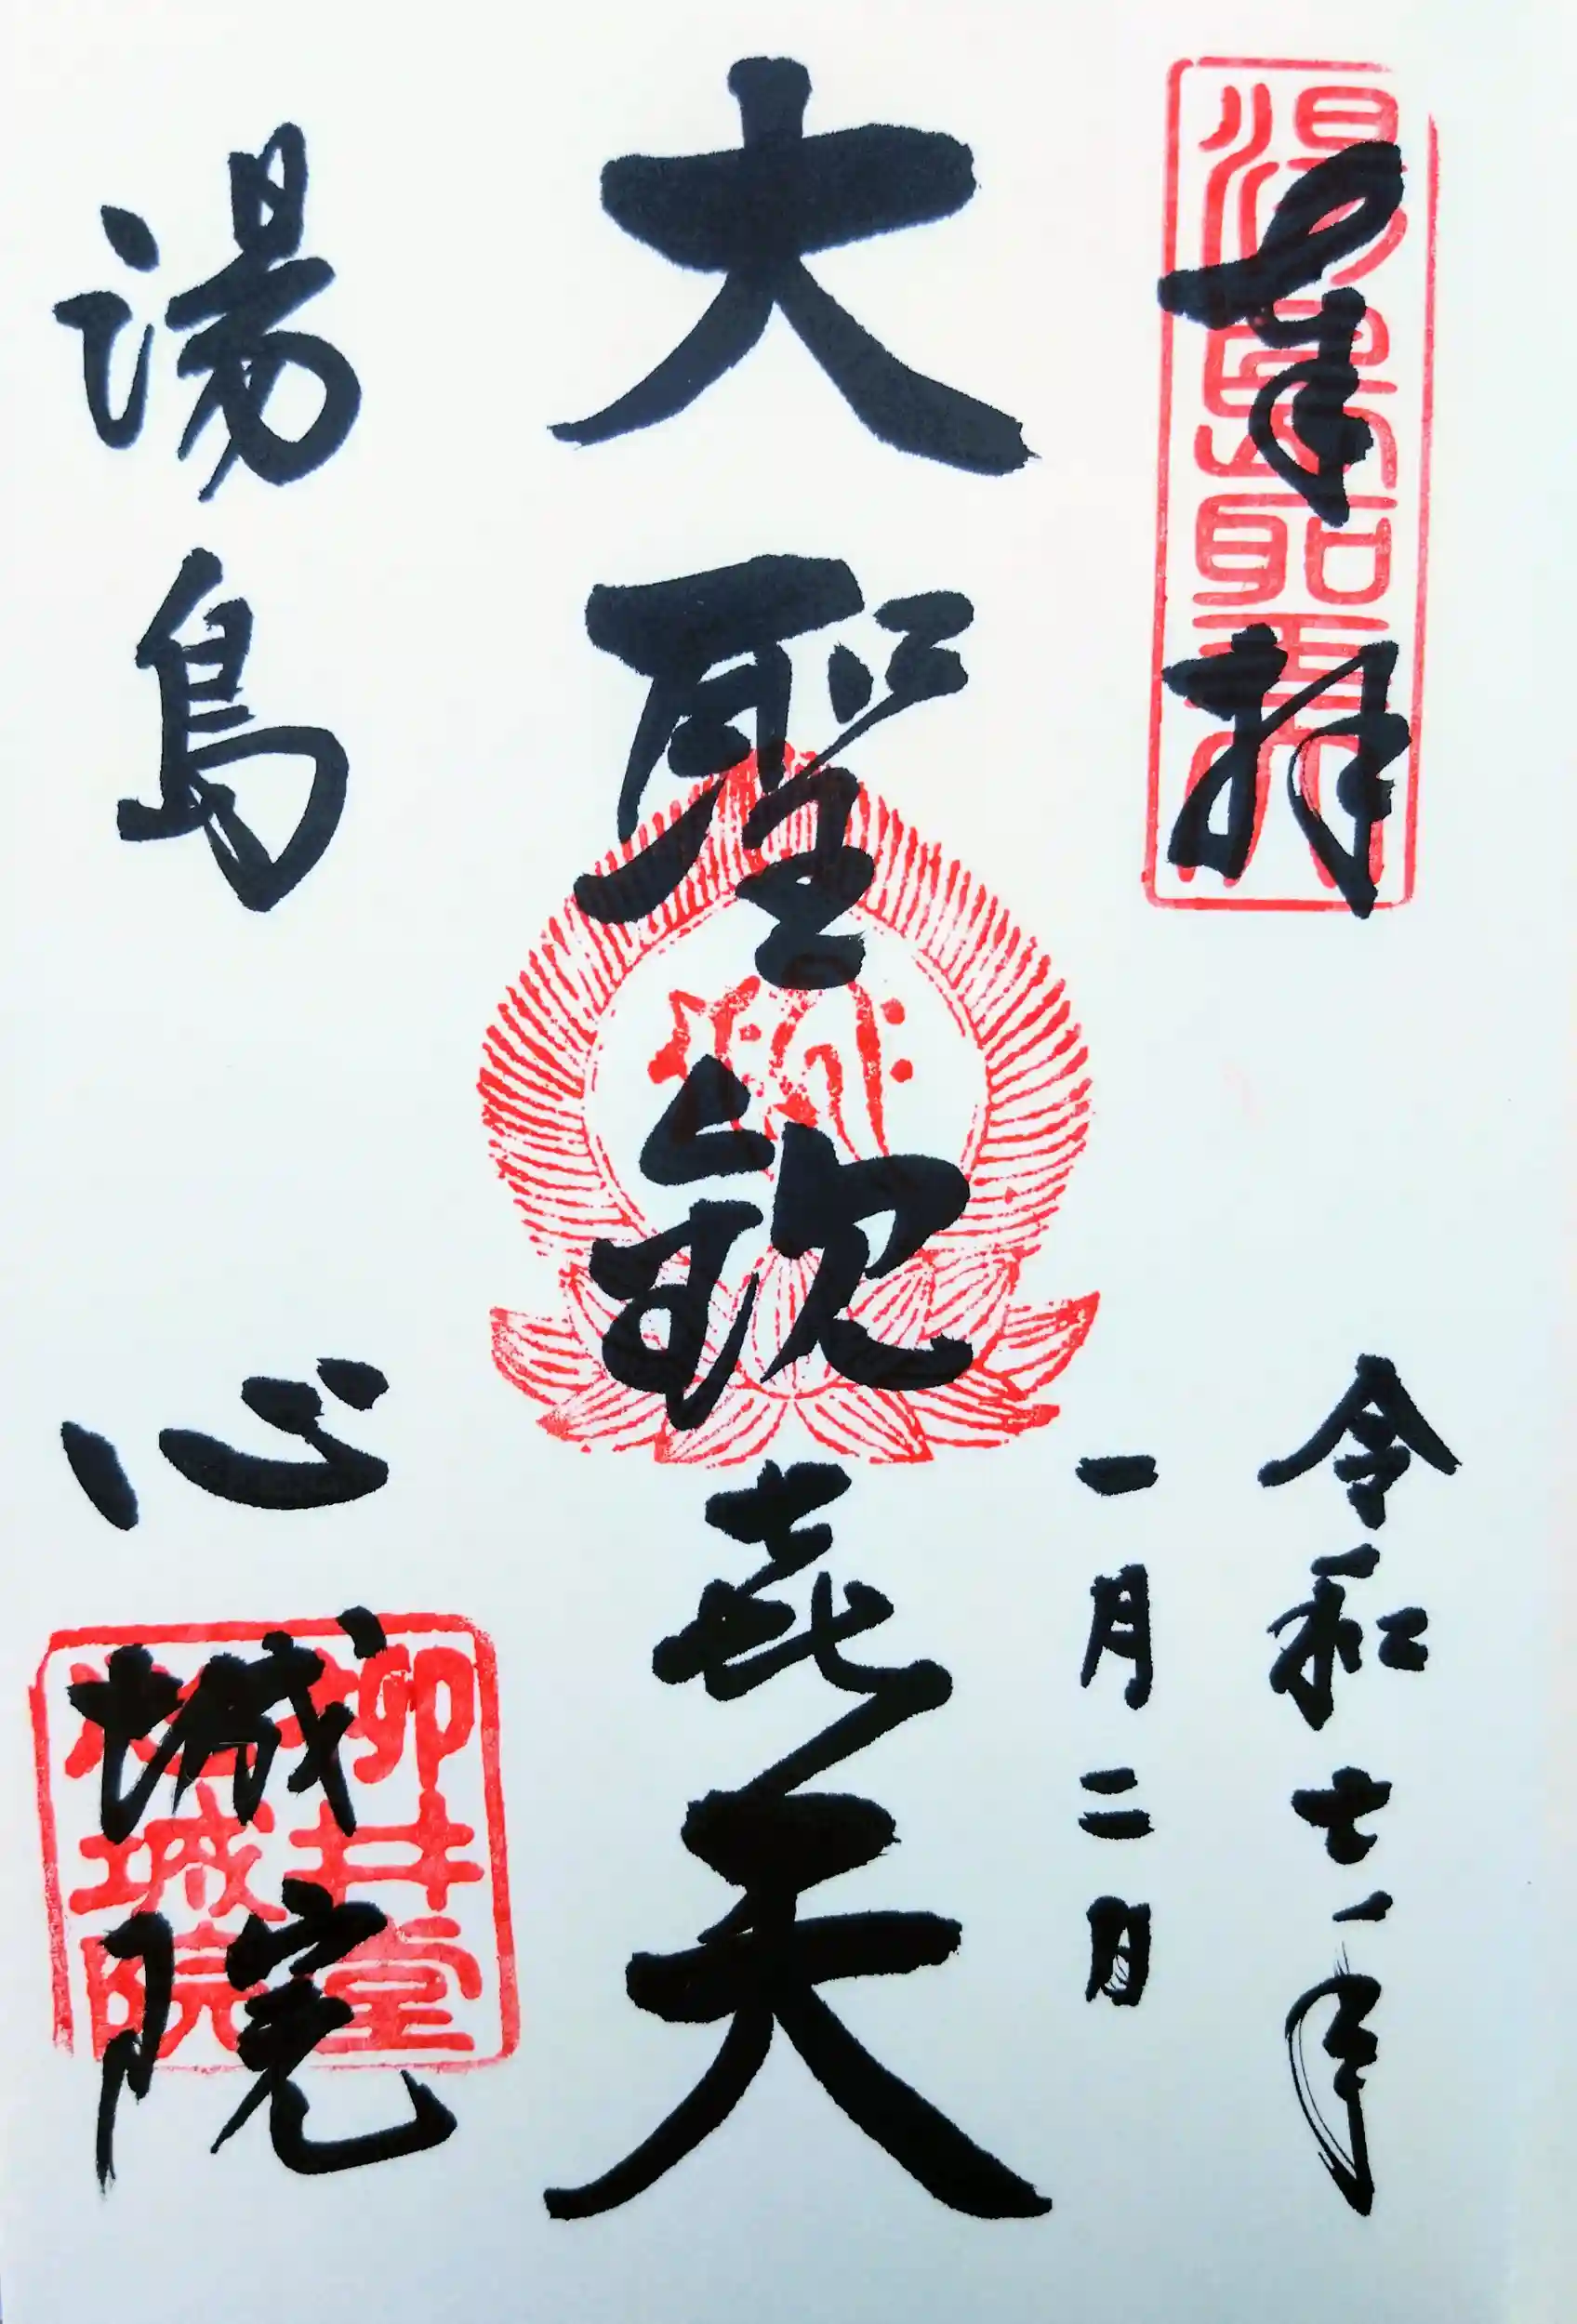 奉拝
湯島聖天
令和七年
一月二日
大聖歓㐂天
湯島 心城院
柳井堂
心城院